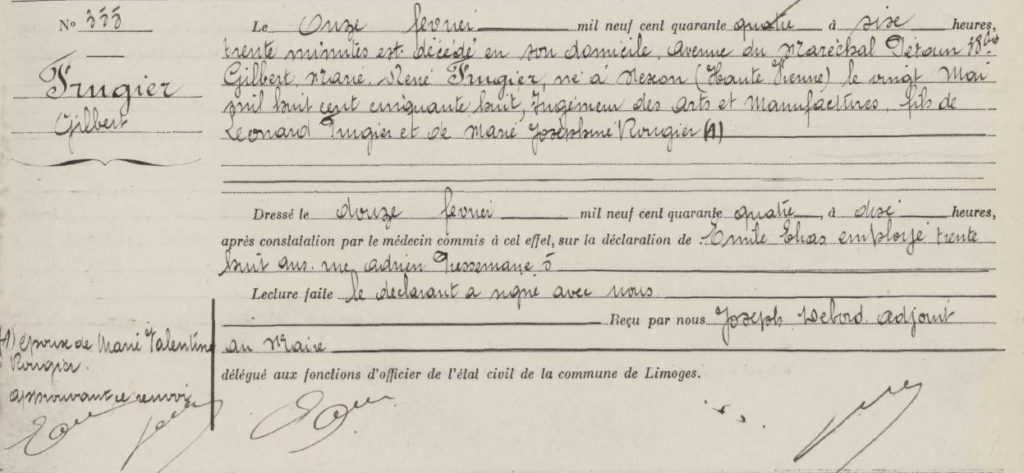 N° 333
Frugier
Gilbert
Le Onze février mil neuf cent quarante quatre à six heures,
trente minutes est décédé en son domicile, avenue du Maréchal Pétain
Gilbert, Marie, René Frugier, né à Nexon (Haute Vienne) le vingt Mai
mil huit cent cinquante huit, Ingénieur des arts et Manufactures, fils de
Léonard Frugier et de Marie Joséphine Rougier (1)
Dressé le douze février mil neuf cent quarante quatre, à dix heures,
après constatation par le médecin commis à cet effet, sur la déclaration de Emile Elias employé trente
huit ans, rue Adrien Pressemane 5
Lecture faite le déclarant a signé avec nous
Reçu par nous Joseph Debord adjoint
au Maire
délégué aux fonctions d'officier de l'état civil de la commune de Limoges.
(1) époux de Marie Valentine
Rougier.
approuvant ce renvoi